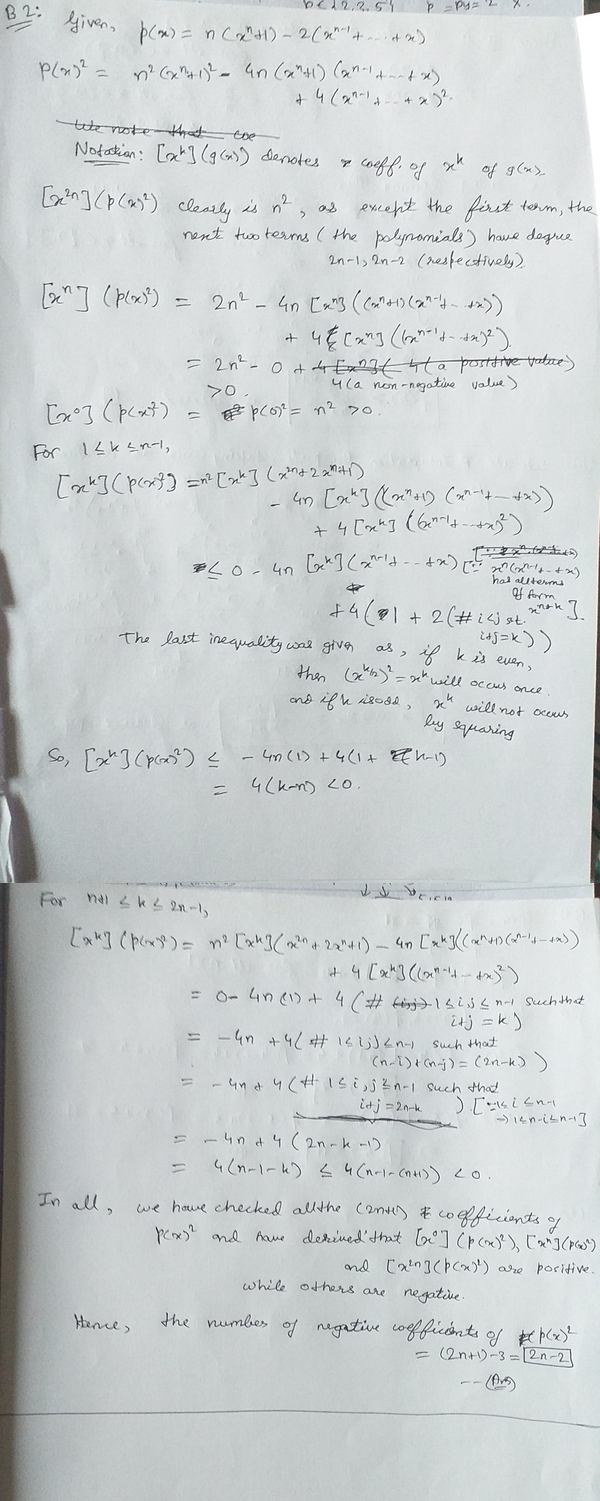 B2: Given, p(x) = n(xⁿ+1) - 2(xⁿ⁻¹+...+x)
p(x)² = n²(xⁿ+1)² - 4n(xⁿ+1)(xⁿ⁻¹+...+x)
+ 4(xⁿ⁻¹+...+x)².
We note that coe
Notation: [xᵏ](g(x)) denotes coeff. of xᵏ of g(x).
[x²ⁿ](p(x)²) clearly is n², as except the first term, the
next two terms (the polynomials) have degree
2n-1, 2n-2 (respectively).
[xⁿ](p(x)²) = 2n² - 4n[xⁿ]((xⁿ+1)(xⁿ⁻¹+...+x))
+ 4[xⁿ]((xⁿ⁻¹+...+x)²)
= 2n² - 0 + 4[xⁿ]( 4(a positive value)
> 0. 4(a non-negative value)
[x⁰](p(x)²) = p(0)² = n² > 0.
For 1 ≤ k ≤ n-1,
[xᵏ](p(x)²) = n²[xᵏ](x²ⁿ+2xⁿ+1)
- 4n[xᵏ]((xⁿ+1)(xⁿ⁻¹+...+x))
+ 4[xᵏ]((xⁿ⁻¹+...+x)²)
≤ 0 - 4n[xᵏ](xⁿ⁻¹+...+x) [∵ xⁿ(xⁿ⁻¹+...+x)
has all terms
of form
xⁿ⁺ᵏ].
+ 4(1 + 2(# i<j st.
i+j=k))
The last inequality was given as, if k is even,
then (x^(k/2))² = xᵏ will occur once.
and if k is odd, xᵏ will not occur
by squaring
So, [xᵏ](p(x)²) ≤ -4n(1) + 4(1 + k-1)
= 4(k-n) < 0.
For n+1 ≤ k ≤ 2n-1,
[xᵏ](p(x)²) = n²[xᵏ](x²ⁿ+2xⁿ+1) - 4n[xᵏ]((xⁿ+1)(xⁿ⁻¹+...+x))
+ 4[xᵏ]((xⁿ⁻¹+...+x)²)
= 0 - 4n(1) + 4(# (i,j) 1 ≤ i,j ≤ n-1 such that
i+j = k)
= -4n + 4(# 1 ≤ i,j ≤ n-1 such that
(n-i)+(n-j) = (2n-k))
= -4n + 4(# 1 ≤ i,j ≤ n-1 such that
i+j = 2n-k) [∵ 1 ≤ i ≤ n-1
→ 1 ≤ n-i ≤ n-1]
= -4n + 4(2n-k-1)
= 4(n-1-k) ≤ 4(n-1-(n+1)) < 0.
In all, we have checked all the (2n+1) coefficients of
p(x)² and have derived that [x⁰](p(x)²), [xⁿ](p(x)²)
and [x²ⁿ](p(x)²) are positive.
while others are negative.
Hence, the number of negative coefficients of p(x)²
= (2n+1)-3 = 2n-2
-- (Ans)